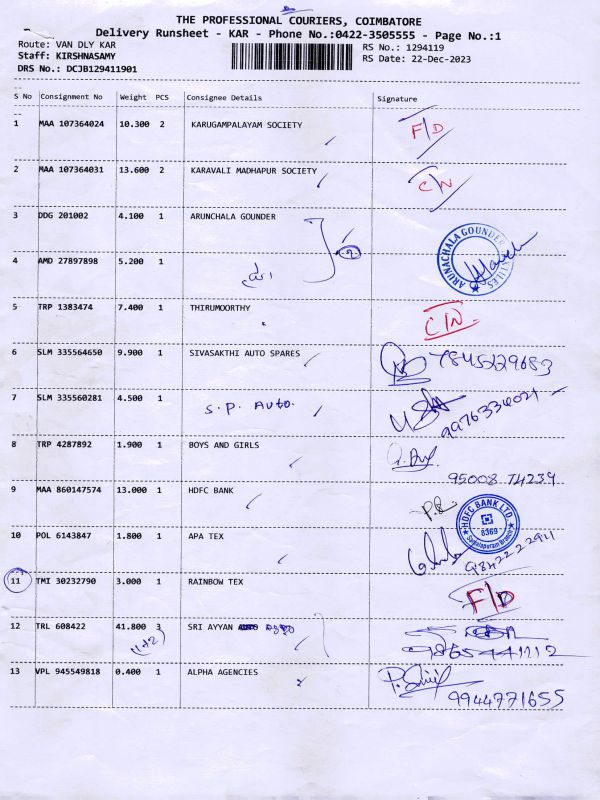 THE PROFESSIONAL COURIERS, COIMBATORE
Delivery Runsheet - KAR - Phone No.:0422-3505555 - Page No.:1
Route: VAN DLY KAR
RS No.: 1294119
Staff: KIRSHNASAMY
RS Date: 22-Dec-2023
DRS No.: DCJB129411901
S No Consignment No Weight PCS Consignee Details Signature
1 MAA 107364024 10.300 2 KARUGAMPALAYAM SOCIETY F/D
2 MAA 107364031 13.600 2 KARAVALI MADHAPUR SOCIETY C/N
3 DDG 201002 4.100 1 ARUNCHALA GOUNDER
2
ARUNACHALA GOUNDER
4 AMD 27897898 5.200 1
5 TRP 1383474 7.400 1 THIRUMOORTHY C/N
6 SLM 335564650 9.900 1 SIVASAKTHI AUTO SPARES 7845229683
7 SLM 335560281 4.500 1 S.P. AUTO. 9976334021
8 TRP 4287892 1.900 1 BOYS AND GIRLS
95008 74239
9 MAA 860147574 13.000 1 HDFC BANK
HDFC BANK LTD
8369
10 POL 6143847 1.800 1 APA TEX
9842222911
11 TMI 30232790 3.000 1 RAINBOW TEX F/D
12 TRL 608422 41.800 3 SRI AYYAN
(1+2)
9865441212
13 VPL 945549818 0.400 1 ALPHA AGENCIES
9944771655